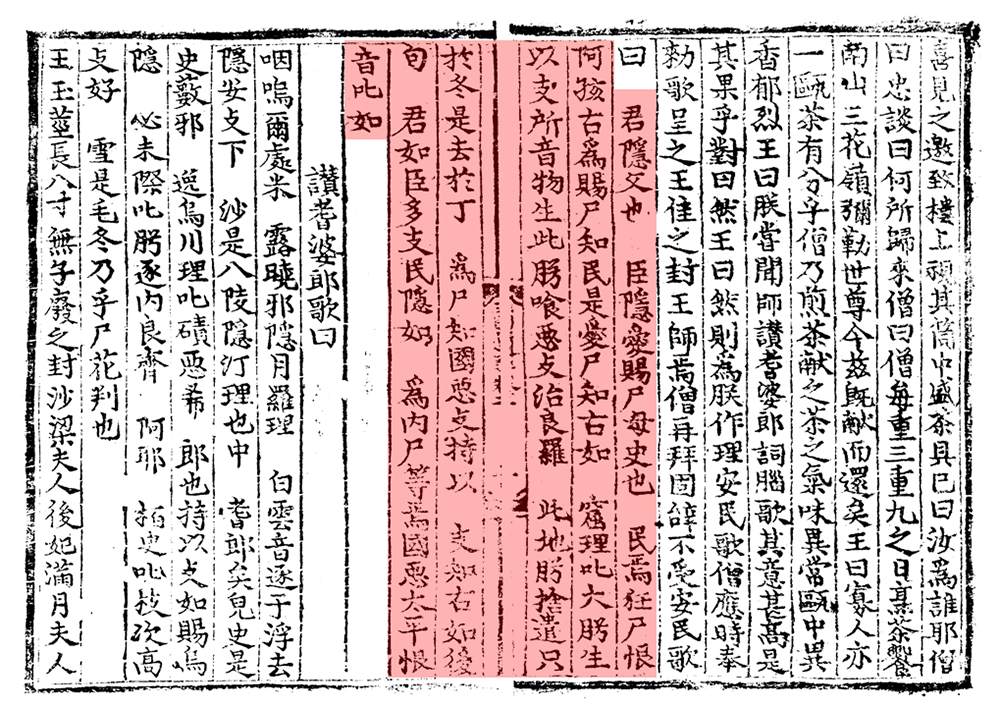 喜見之邀致樓上視其筒中盛茶具已曰汝爲誰耶僧
曰忠談曰何所歸來僧曰僧每重三重九之日烹茶饗
南山三花嶺彌勒世尊今玆旣獻而還矣王曰寡人亦
一甌茶有分乎僧乃煎茶獻之茶之氣味異常甌中異
香郁烈王曰朕嘗聞師讃耆婆郎詞腦歌其意甚高是
其果乎對曰然王曰然則爲朕作理安民歌僧應時奉
勑歌呈之王佳之封王師焉僧再拜固辝不受安民歌
曰 君隱父也 臣隱愛賜尸母史也 民焉狂尸恨
阿孩古爲賜尸知民是愛尸知古如 窟理叱大肹生
以支所音物生此肹喰惡攴治良羅 此地肹捨遣只
於冬是去於丁 爲尸知國惡攴持以 支知古如後
句 君如臣多支民隱如 爲內尸等焉國惡太平恨
音叱如
讃耆婆郎歌曰
咽嗚爾處米 露曉邪隱月羅理 白雲音逐于浮去
隱安攴下 沙是八陵隱汀理也中 耆郎矣皃史是
史藪邪 逸烏川理叱磧惡希 郎也持以攴如賜烏
隱 心未際叱肹逐內良齊 阿耶 栢史叱枝次高
攴好 雪是毛冬乃乎尸花判也
王玉莖長八寸無子廢之封沙梁夫人後妃滿月夫人